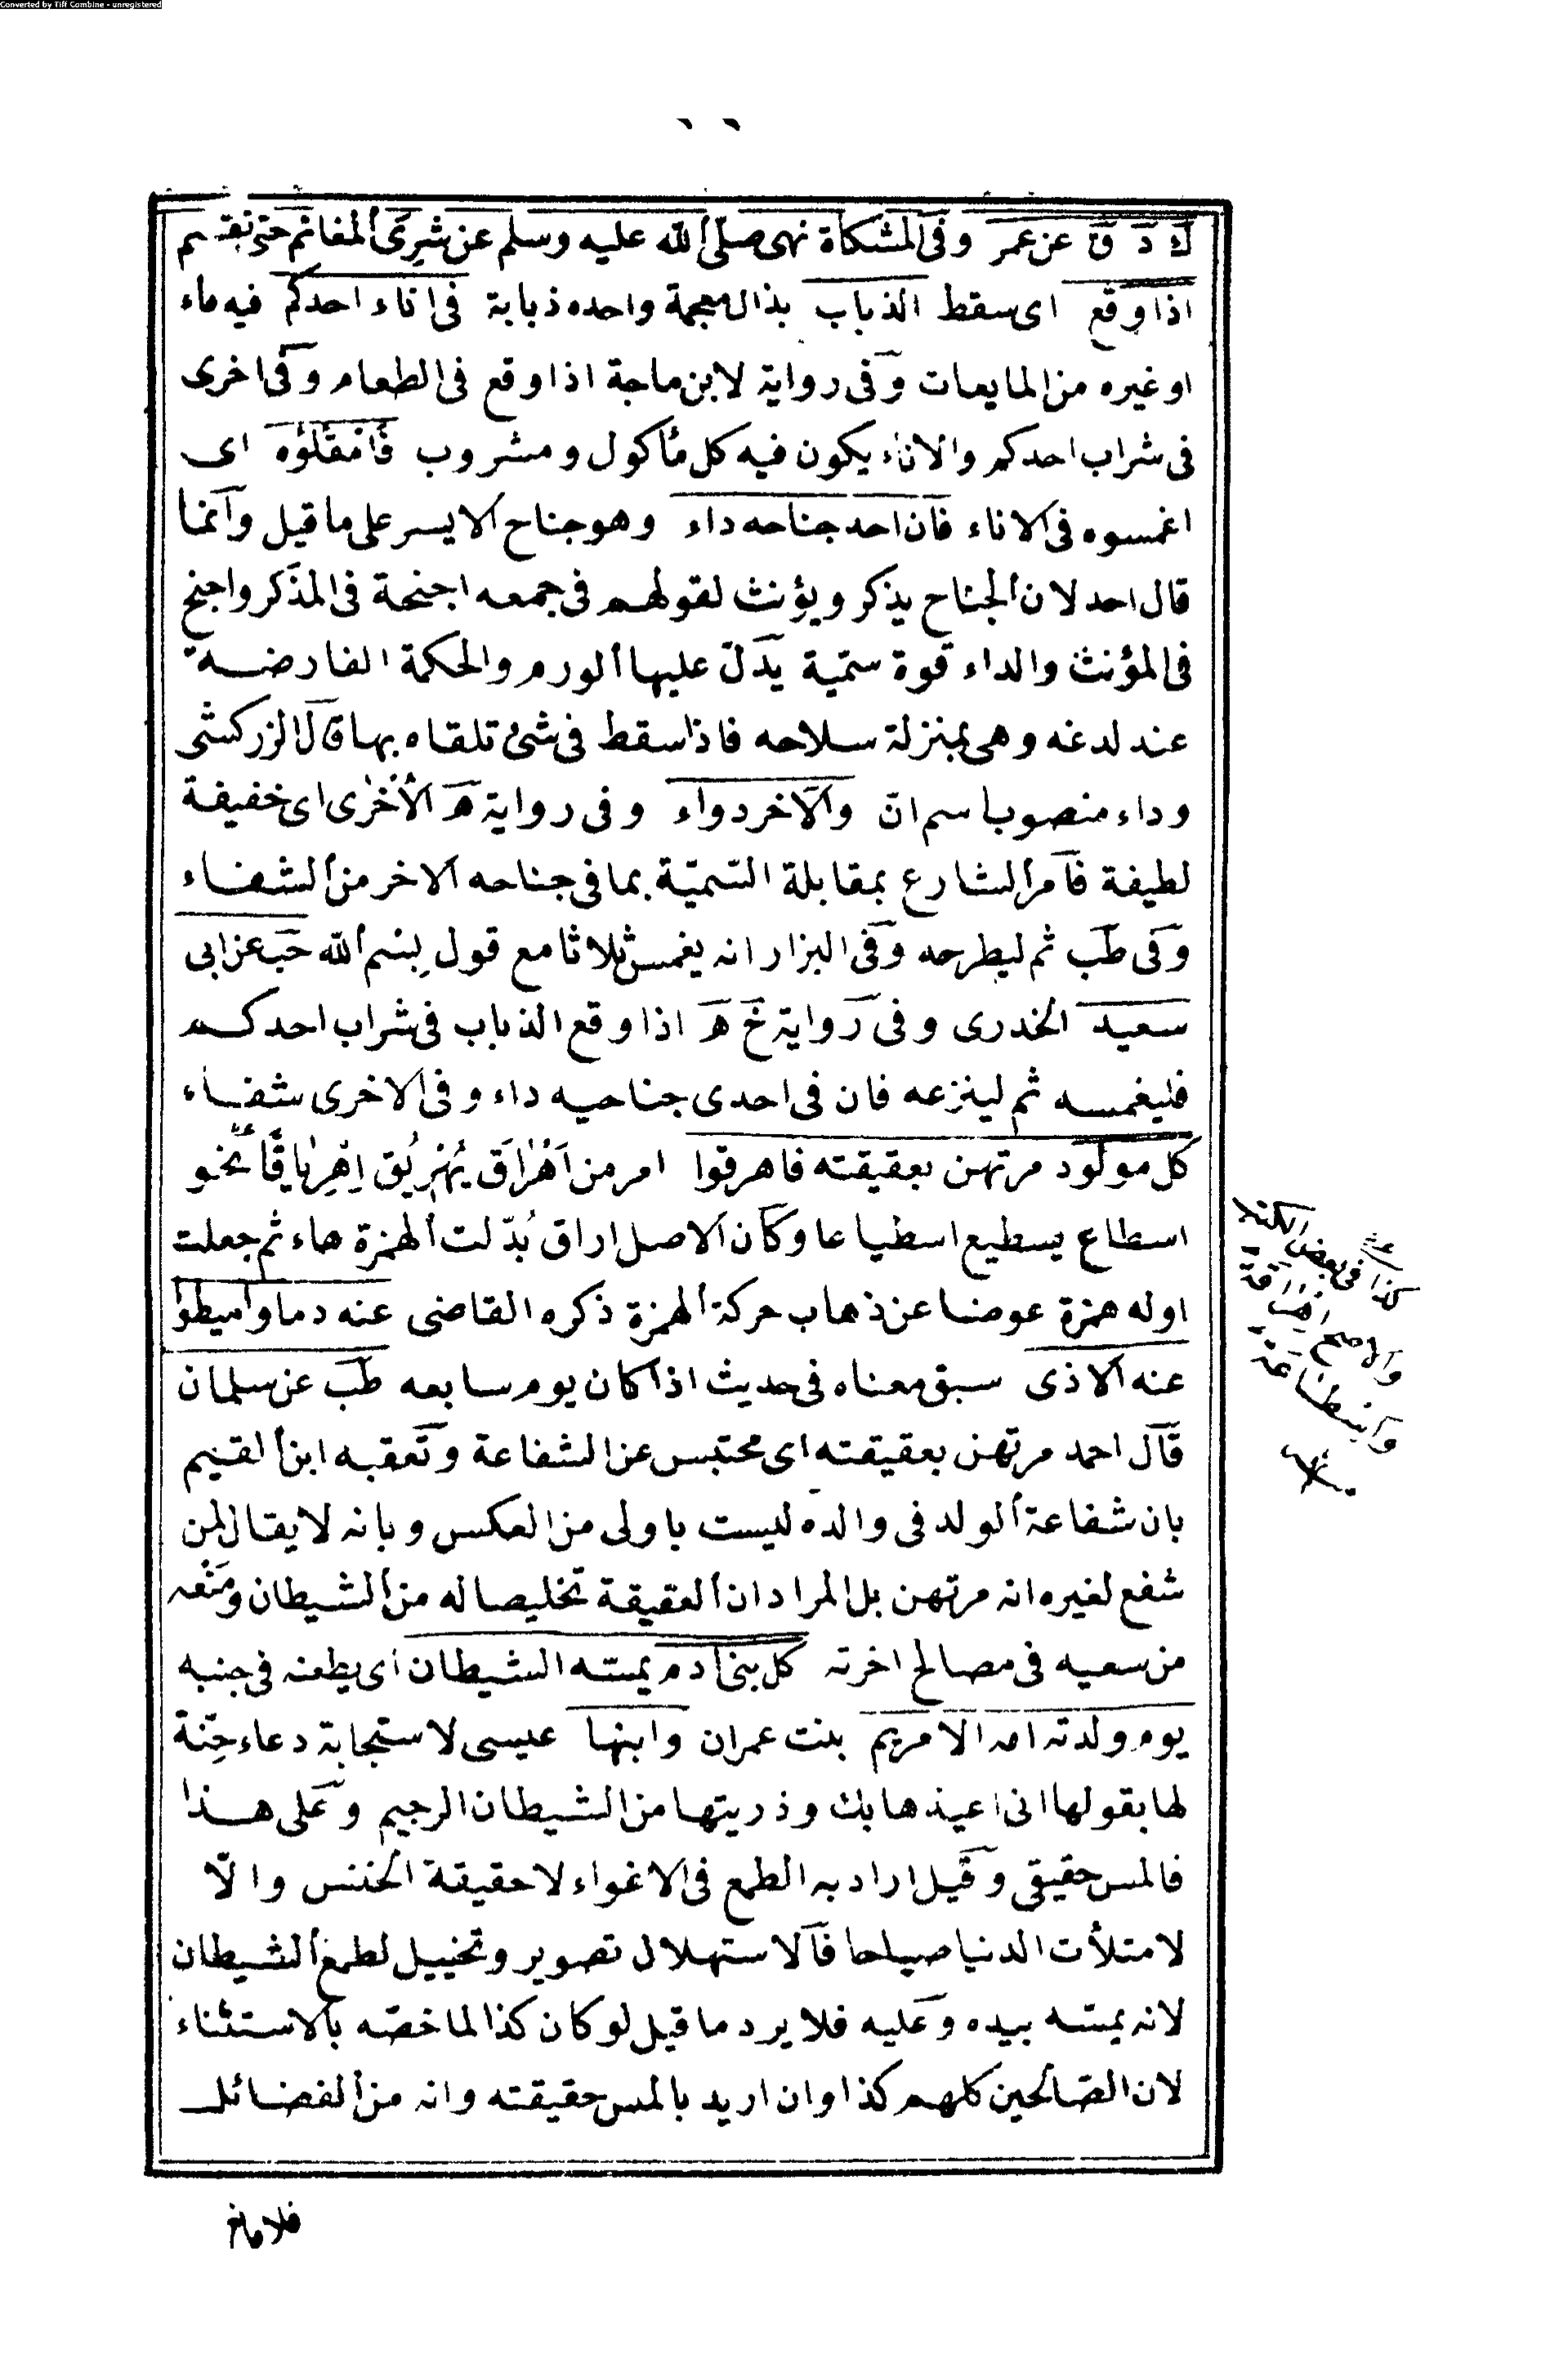 Converted by Tiff Combine - unregistered
ك د ق عن عمر وفى المشكاة نهى صلى الله عليه وسلم عن شرى المغانم حتى تقسم
اذا وقع اى سقط الذباب بذال معجمة واحده ذبابة فى اناء احدكم فيه ماء
او غيره من المايعات وفى رواية لابن ماجة اذا وقع فى الطعام وفى اخرى
فى شراب احدكم والاناء يكون فيه كل مأكول ومشروب فامقلوه اى
اغمسوه فى الاناء فان احد جناحه داء وهو جناح الايسر على ما قيل وانما
قال احد لان الجناح يذكر ويؤنث لقولهم فى جمعه اجنحة فى المذكر واجنح
فى المؤنث والداء قوة سمّية يدلّ عليها الورم والحكمة الفارضة
عند لدغه وهى بمنزلة سلاحه فاذا سقط فى شئ تلقاه بها قال الزركشى
وداء منصوبا سم انّ والآخر دواء وفى رواية هـ الأخرى اى خفيفة
لطيفة فأمر الشارع بمقابلة السّميّة بما فى جناحه الاخر من الشفاء
وفى طب ثم ليطرحه وفى البزار انه يغمس ثلاثا مع قول بسم الله حب عن ابى
سعيد الخدرى وفى رواية خ هـ اذا وقع الذباب فى شراب احدكم
فليغمسه ثم لينزعه فان فى احدى جناحيه داء وفى الاخرى شفاء
كل مولود مرتهن بعقيقته فاهرقوا امر من اَهْرَاقَ يُهْرِيقُ اِهْرِيَاقًا نحو
اسطاع يسطيع اسطياعا وكان الاصل اراق بُدّلت الهمزة هاء ثم جعلت
اوله همزة عوضا عن ذهاب حركة الهمزة ذكره القاضى عنه دما واميطوا
عنه الاذى سبق معناه فى حديث اذا كان يوم سابعه طب عن سلمان
قال احمد مرتهن بعقيقته اى محتبس عن الشفاعة وتعقبه ابن القيم
بان شفاعة الولد فى والده ليست باولى من العكس وبانه لا يقال لمن
شفع لغيره انه مرتهن بل المراد ان العقيقة تخليصا له من الشيطان ومنعه
من سعيه فى مصالح اخرته كل بنى ادم يمسّه الشيطان اى يطعنه فى جنبه
يوم ولدته امه الا مريم بنت عمران وابنها عيسى لاستجابة دعاء حِنّة
لها بقولها انى اعيذها بك وذريتها من الشيطان الرجيم وعلى هذا
فالمس حقيقى وقيل اراد به الطمع فى الاغواء لا حقيقة الخنس والّا
لامتلأت الدنيا صياحا فالاستهلال تصوير وتخييل لطمع الشيطان
لانه يمسّه بيده وعليه فلا يرد ما قيل لو كان كذا لما خصّه بالاستثناء
لان الصّالحين كلهم كذا وان اريد بالمس حقيقته وانه من الفضائل
كذا فى بعض
فلا مانع